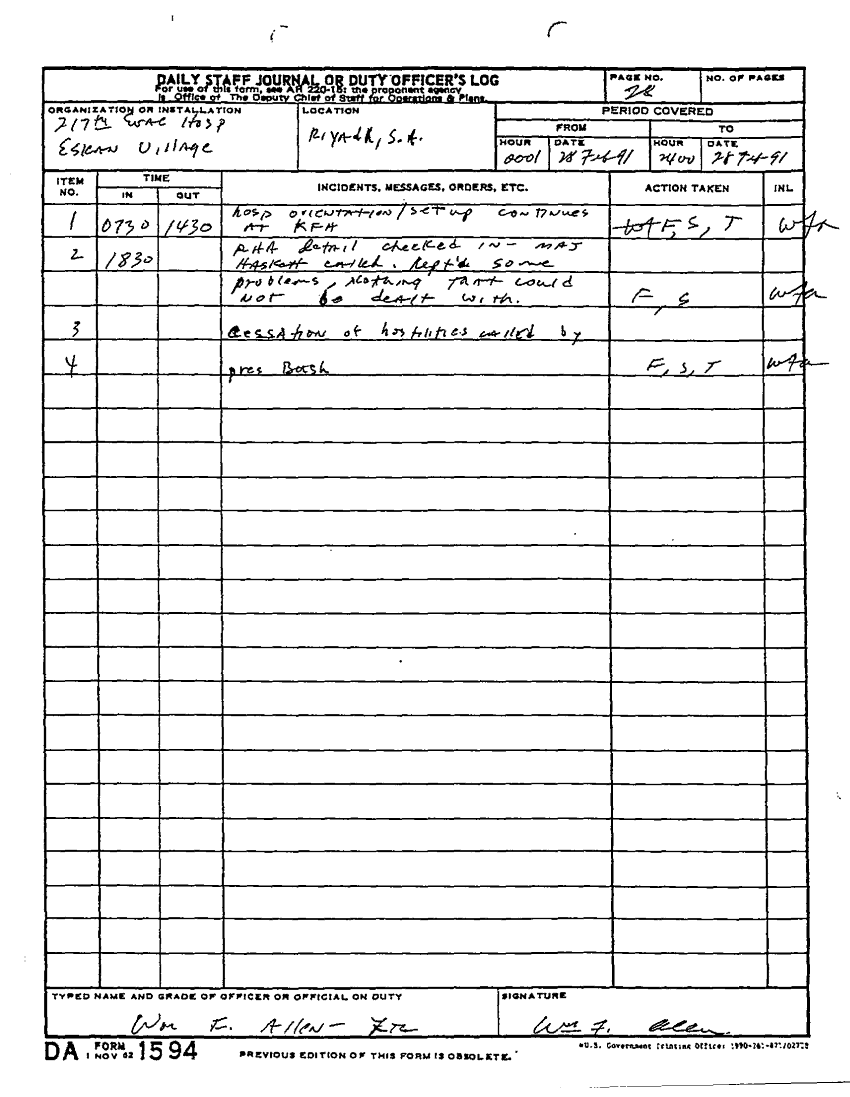 DAILY STAFF JOURNAL OR DUTY OFFICER'S LOG
For use of this form, see AR 220-15; the proponent agency
is Office of The Deputy Chief of Staff for Operations & Plans.
PAGE NO.
28
NO. OF PAGES
ORGANIZATION OR INSTALLATION
217th Evac Hosp
ESKAN Village
LOCATION
Riyadh, S.A.
PERIOD COVERED
FROM
TO
HOUR
0001
DATE
28 Feb 91
HOUR
2400
DATE
28 Feb 91
ITEM NO.
TIME
IN
OUT
INCIDENTS, MESSAGES, ORDERS, ETC.
ACTION TAKEN
INL
1 0730 1430 hosp orientation/setup continues
AT KFH F, S, T wfa
2 1830 RHA detail checked in - MAJ
Haskett called. Rept'd some
problems, nothing that could
not be dealt with. F, S wfa
3 cessation of hostilities called by
4 pres Bush F, S, T wfa
TYPED NAME AND GRADE OF OFFICER OR OFFICIAL ON DUTY
Wm F. Allen -
SIGNATURE
Wm F. Allen
DA FORM 1594
1 NOV 62
PREVIOUS EDITION OF THIS FORM IS OBSOLETE.
U.S. Government Printing Office: 1990-261-871/02728